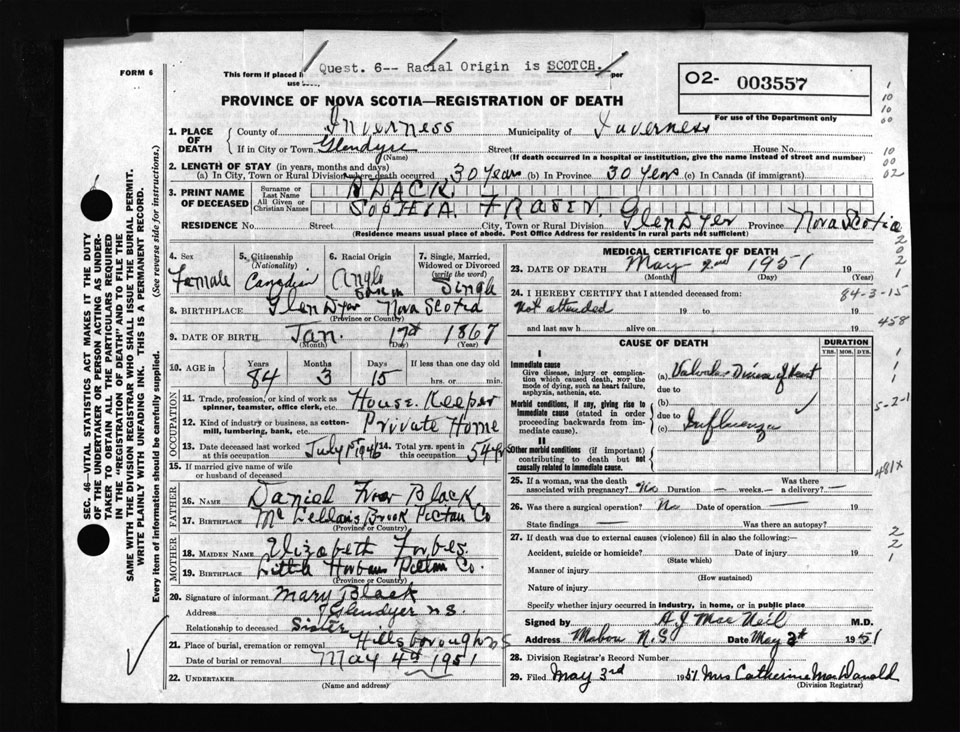 FORM 6
This form if placed i
Quest. 6-- Racial Origin is SCOTCH.
per
use
O2- 003557
For use of the Department only
PROVINCE OF NOVA SCOTIA—REGISTRATION OF DEATH
1. PLACE OF DEATH
County of Inverness Municipality of Inverness
If in City or Town Glendyre Street House No.
(Name) (If death occurred in a hospital or institution, give the name instead of street and number)
2. LENGTH OF STAY (in years, months and days)
(a) In City, Town or Rural Division where death occurred 30 Years (b) In Province 30 Years (c) In Canada (if immigrant)
3. PRINT NAME OF DECEASED
Surname or Last Name BLACK.
All Given or Christian Names SopHEIA. FRASER.
RESIDENCE No. Street City, Town or Rural Division Glen Dyer Province Nova Scotia
(Residence means usual place of abode. Post Office Address for residents in rural parts not sufficient)
4. Sex Female
5. Citizenship (Nationality) Canadian
6. Racial Origin Anglo Saxon
7. Single, Married, Widowed or Divorced (write the word) Single
8. BIRTHPLACE Glen Dyer Nova Scotia
(Province or Country)
9. DATE OF BIRTH Jan. 17th 1867
(Month) (Day) (Year)
10. AGE in Years 84 Months 3 Days 15 If less than one day old hrs. or min.
OCCUPATION
11. Trade, profession, or kind of work as spinner, teamster, office clerk, etc. House Keeper
12. Kind of industry or business, as cotton-mill, lumbering, bank, etc. Private Home
13. Date deceased last worked at this occupation July 1st 1946
14. Total yrs. spent in this occupation 54 yrs
15. If married give name of wife or husband of deceased
FATHER
16. NAME Daniel Black
17. BIRTHPLACE Mc Lellans Brook Pictou Co
(Province or Country)
MOTHER
18. MAIDEN NAME Elizabeth Forbes.
19. BIRTHPLACE Little Harbour Pictou Co.
(Province or Country)
20. Signature of informant Mary Black
Address Glendyer N.S.
Relationship to deceased Sister
21. Place of burial, cremation or removal Hillsborough NS
Date of burial or removal May 4th 1951
22. UNDERTAKER
(Name and address)
MEDICAL CERTIFICATE OF DEATH
23. DATE OF DEATH May 2nd 1951 19
(Month) (Day) (Year)
24. I HEREBY CERTIFY that I attended deceased from:
84-3-15
Not attended 19 to 19
and last saw h alive on 19
458
CAUSE OF DEATH
DURATION
YRS. MOS. DYS.
I
Immediate cause
Give disease, injury or complication which caused death, not the mode of dying, such as heart failure, asphyxia, asthenia, etc.
(a) Valvular Disease of Heart
due to
Morbid conditions, if any, giving rise to immediate cause (stated in order proceeding backwards from immediate cause).
(b)
due to
(c) Influenza
5-2-1
II
Other morbid conditions (if important) contributing to death but not causally related to immediate cause.
481X
25. If a woman, was the death associated with pregnancy? No Duration — weeks.— Was there a delivery? —
26. Was there a surgical operation? No Date of operation — 19
State findings — Was there an autopsy?
27. If death was due to external causes (violence) fill in also the following:—
Accident, suicide or homicide? Date of injury 19
(State which)
Manner of injury
(How sustained)
Nature of injury
Specify whether injury occurred in industry, in home, or in public place
Signed by AJ Mac Neil M.D.
Address Mabou N.S Date May 1951
28. Division Registrar's Record Number
29. Filed May 3rd 1951 Mrs Catherine MacDonald
(Division Registrar)
SEC. 46—VITAL STATISTICS ACT MAKES IT THE DUTY
OF THE UNDERTAKER OR PERSON ACTING AS UNDERTAKER TO OBTAIN ALL THE PARTICULARS REQUIRED
IN THE "REGISTRATION OF DEATH" AND TO FILE THE
SAME WITH THE DIVISION REGISTRAR WHO SHALL ISSUE THE BURIAL PERMIT.
WRITE PLAINLY WITH UNFADING INK. THIS IS A PERMANENT RECORD.
Every item of information should be carefully supplied. (See reverse side for instructions.)